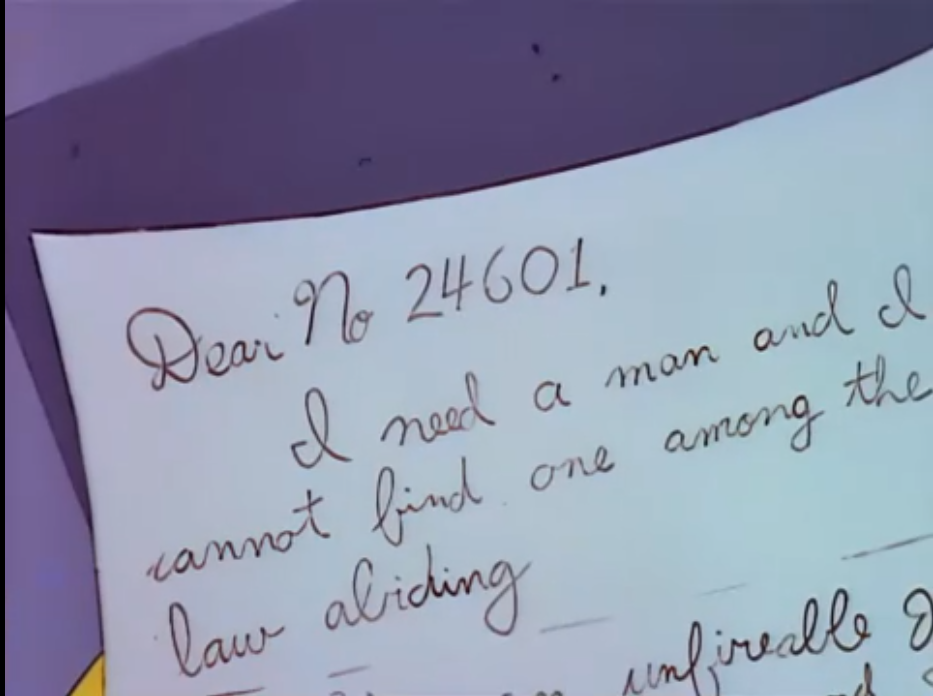 Dear No 24601,
I need a man and I
cannot find one among the
law abiding
unfireable